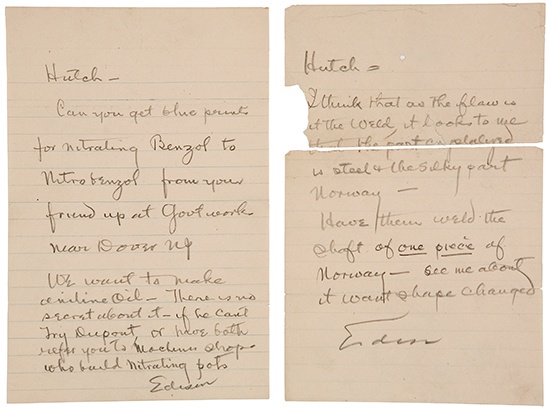 Hutch —
Can you get blue prints
for nitrating Benzol to
Nitrobenzol from your
friend up at Govt works
near Dover NJ
We want to make
aniline Oil — There is no
secret about it — if he cant
Try Dupont or have both
refer you to Machine shops
who build nitrating pots
Edison
Hutch =
I think that as the flaw is
at the Weld, it looks to me
that the part crystalized
is steel & the silky part
Norway —
Have them weld the
shaft of one piece of
Norway — see me about
it want shape changed
Edison